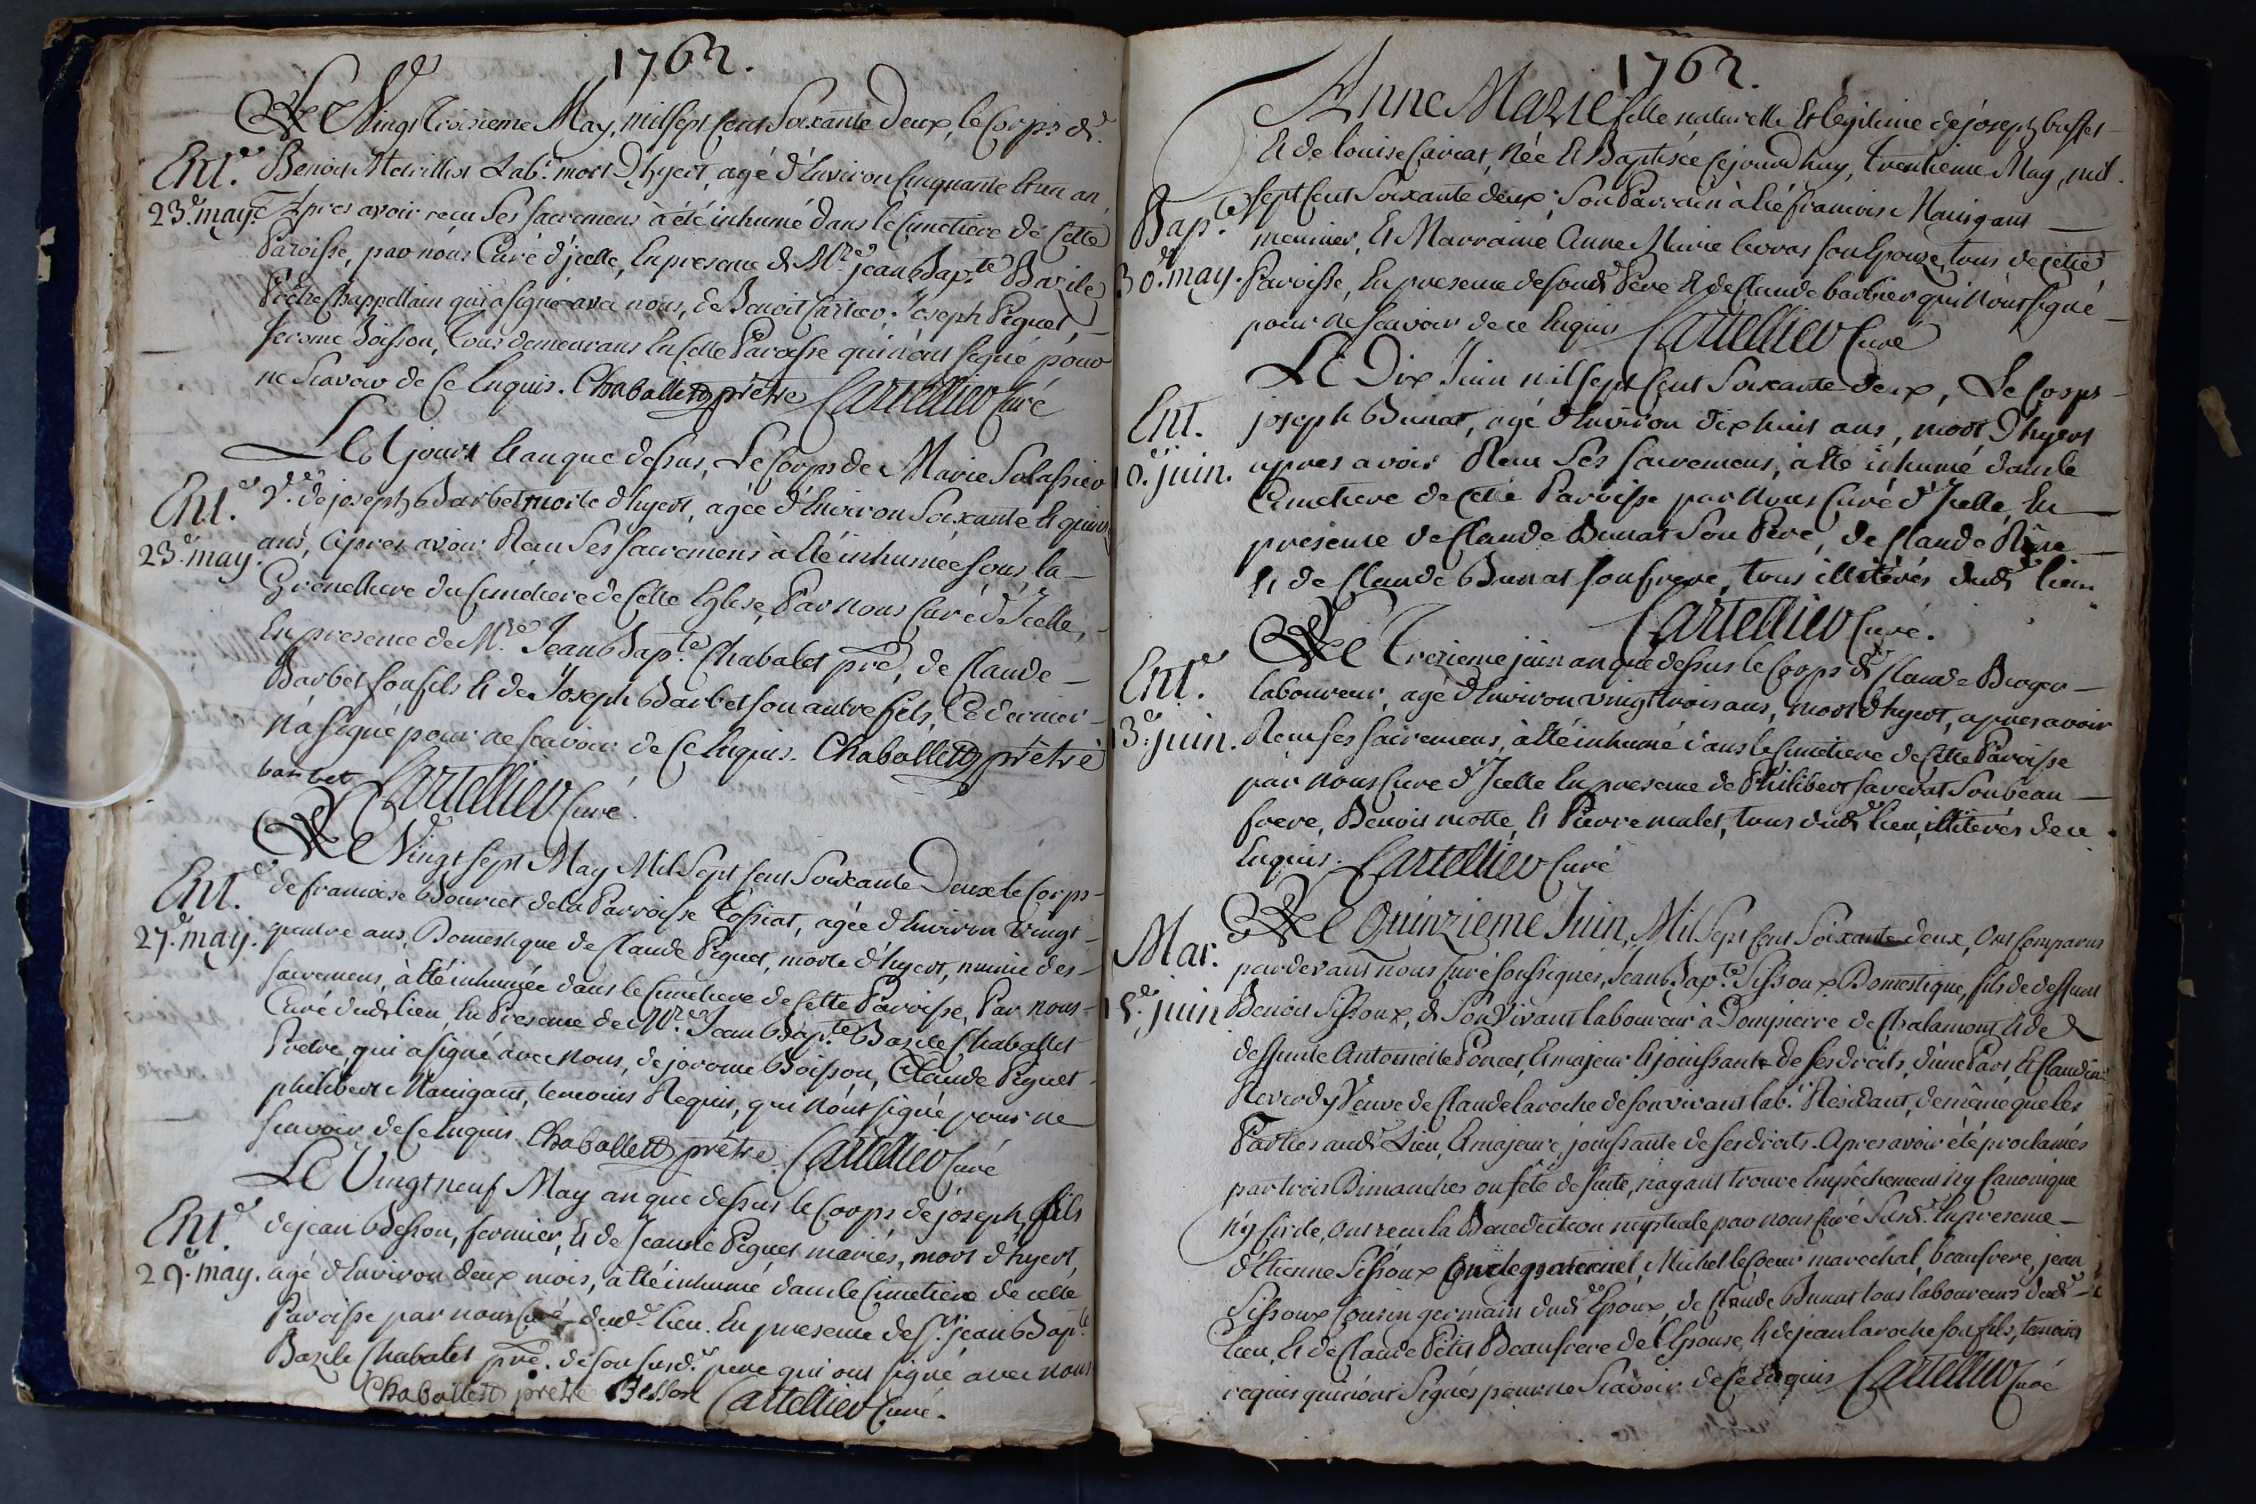 1762.
Le Vingt troisieme May, mil sept cent Soixante Deux, le Corps de
Ent.
Benoit Lab.r mort d'hyert, agé d'Environ Cinquante et un an
23.e may.
Apres avoir recu Ses sacremens à été inhumé dans le Cimetiere de Cette
Paroisse, par nous Curé d'jcelle, En presence de M.re jean Bap.te Bazile
Prêtre Chappellain qui a signé avec nous, de Benoit Cartier, Joseph Piquet,
Jerome Boisson, Tous demeurans En Cette Paroisse qui n'ont signé pour
ne Scavoir de Ce Enquis. Chaballet prêtre Cartellier Curé
Le jour et an que dessus, Le Corps de Marie Solassier
Ent.
V.e de joseph Barbet morte d'hyert, agée d'Environ Soixante et quinze
23.e may.
ans, Apres avoir Recu Ses sacremens à été inhumée sous la
du Cimetiere de Cette Eglise, Par nous Curé d'Jcelle,
En presence de M.re Jean Bap.te Chabalet p̃re, de Claude
Barbet son fils et de Joseph Barbet son autre fils, Ce dernier
N'a signé pour ne scavoir de Ce Enquis. Chaballet prêtre
barbet Cartellier Curé.
Le Vingt sept May Mil Sept Cent Soixante Deux le Corps
Ent.
de francoise Bouvret de la Parroisse Tossiat, agée d'Environ Vingt
27.e may.
quatre ans, Domestique de Claude Piquet, morte d'hyert, munie des
sacremens, à été inhumée dans le Cimetiere de Cette Paroisse, Par nous
Curé dud. lieu, En Presence de M.re Jean Bap.te Bazile Chaballet
Pretre, qui a signé avec nous, de jerome Boisson, Claude Piquet
philibert Manigant, temoins Requis, qui n'ont signé pour ne
scavoir de Ce Enquis Chaballet prêtre. Cartellier Curé
Le Vingt neuf May an que dessus le Corps de joseph fils
Ent.
de jean Besson, fermier, et de Jeanne Piquet mariés, mort d'hyert,
29.e may.
agé d'Environ deux mois, à été inhumé dans le Cimetiere de cette
Paroisse par nous Curé dud. lieu. En presence de S.r jean Bap.te
Bazile Chabalet p̃re. de son susd. pere qui ont signé avec nous
Chaballet pretre Besson Cartellier Curé.
1762.
Anne Marie fille naturelle et légitime de joseph buffet
et de louise Cariat, Née et Baptisée Cejourd'huy, trentieme May, mil
Bap.te
sept Cent Soixante deux; Son Parrain à été francois Manigant
30.e may.
meunier, et Marraine Anne Marie son Epouze, tous de cette
Paroisse, En presence desond. Père et de Claude barbier qui n'ont signé
pour ne scavoir de ce Enquis Cartellier Curé
Le Dix Juin mil sept Cent Soixante deux, Le Corps
Ent.
joseph Bunat, agé d'Environ dix huit ans, mort d'hyert
10.e juin.
apres avoir Recu Ses sacremens, à été inhumé dans le
Cimetiere de cette Paroisse par Nous Curé d'Jcelle, En
presence de Claude Bunat Son Pere, de Claude
et de Claude Bunat son frere, tous illitérés dud. lieu
Cartellier Curé.
Le Treizieme juin an que dessus le Corps de Claude Berger
Ent.
laboureur, agé d'Environ vingt trois ans, mort d'hyert, apres avoir
13.e juin.
Recu ses sacremens, à été inhumé dans le Cimetiere de Cette Paroisse
par nous Curé d'Jcelle En presence de Philibert Son beau
frere, Benoit motte, et Pierre malet, tous dud. lieu, illitérés de ce
Enquis. Cartellier Curé
Le Quinzieme Juin, Mil Sept Cent Soixante deux, Ont Comparus
Mar.
pardevant nous Curé soussignes, Jean Bap.te Sissoux Domestique, fils de deffunt
15.e juin
Benoit Sissoux, de Son Vivant laboureur à Dompierre de Chalamont et de
deffunte Antoinette Poncet, Et majeur et jouissant de ses droits, d'une Part, Et Claudine
Reverdy Veuve de Claude laroche de son vivant lab.r Résidant, de même que les
Parties aud. Lieu, Et majeure, jouissante de ses droits. Apres avoir été proclamés
par trois Dimanches ou fête de suite, n'ayant trouvé Empêchement ny Canonique
n'y Civile, ont recu la Benediction nuptiale par nous Curé Susd. En presence
d'Etienne Sissoux Oncle paternel, Michel leCoeur marechal, beaufrere, jean
Sissoux Cousin germain dud. Epoux, de Claude Bunat tous laboureurs dud.
lieu, et de Claude Petit Beaufrere de l'Epouse, et de jean laroche son fils, temoins
requis qui n'ont Signés pour ne Scavoir de Ce Enquis Cartellier Curé